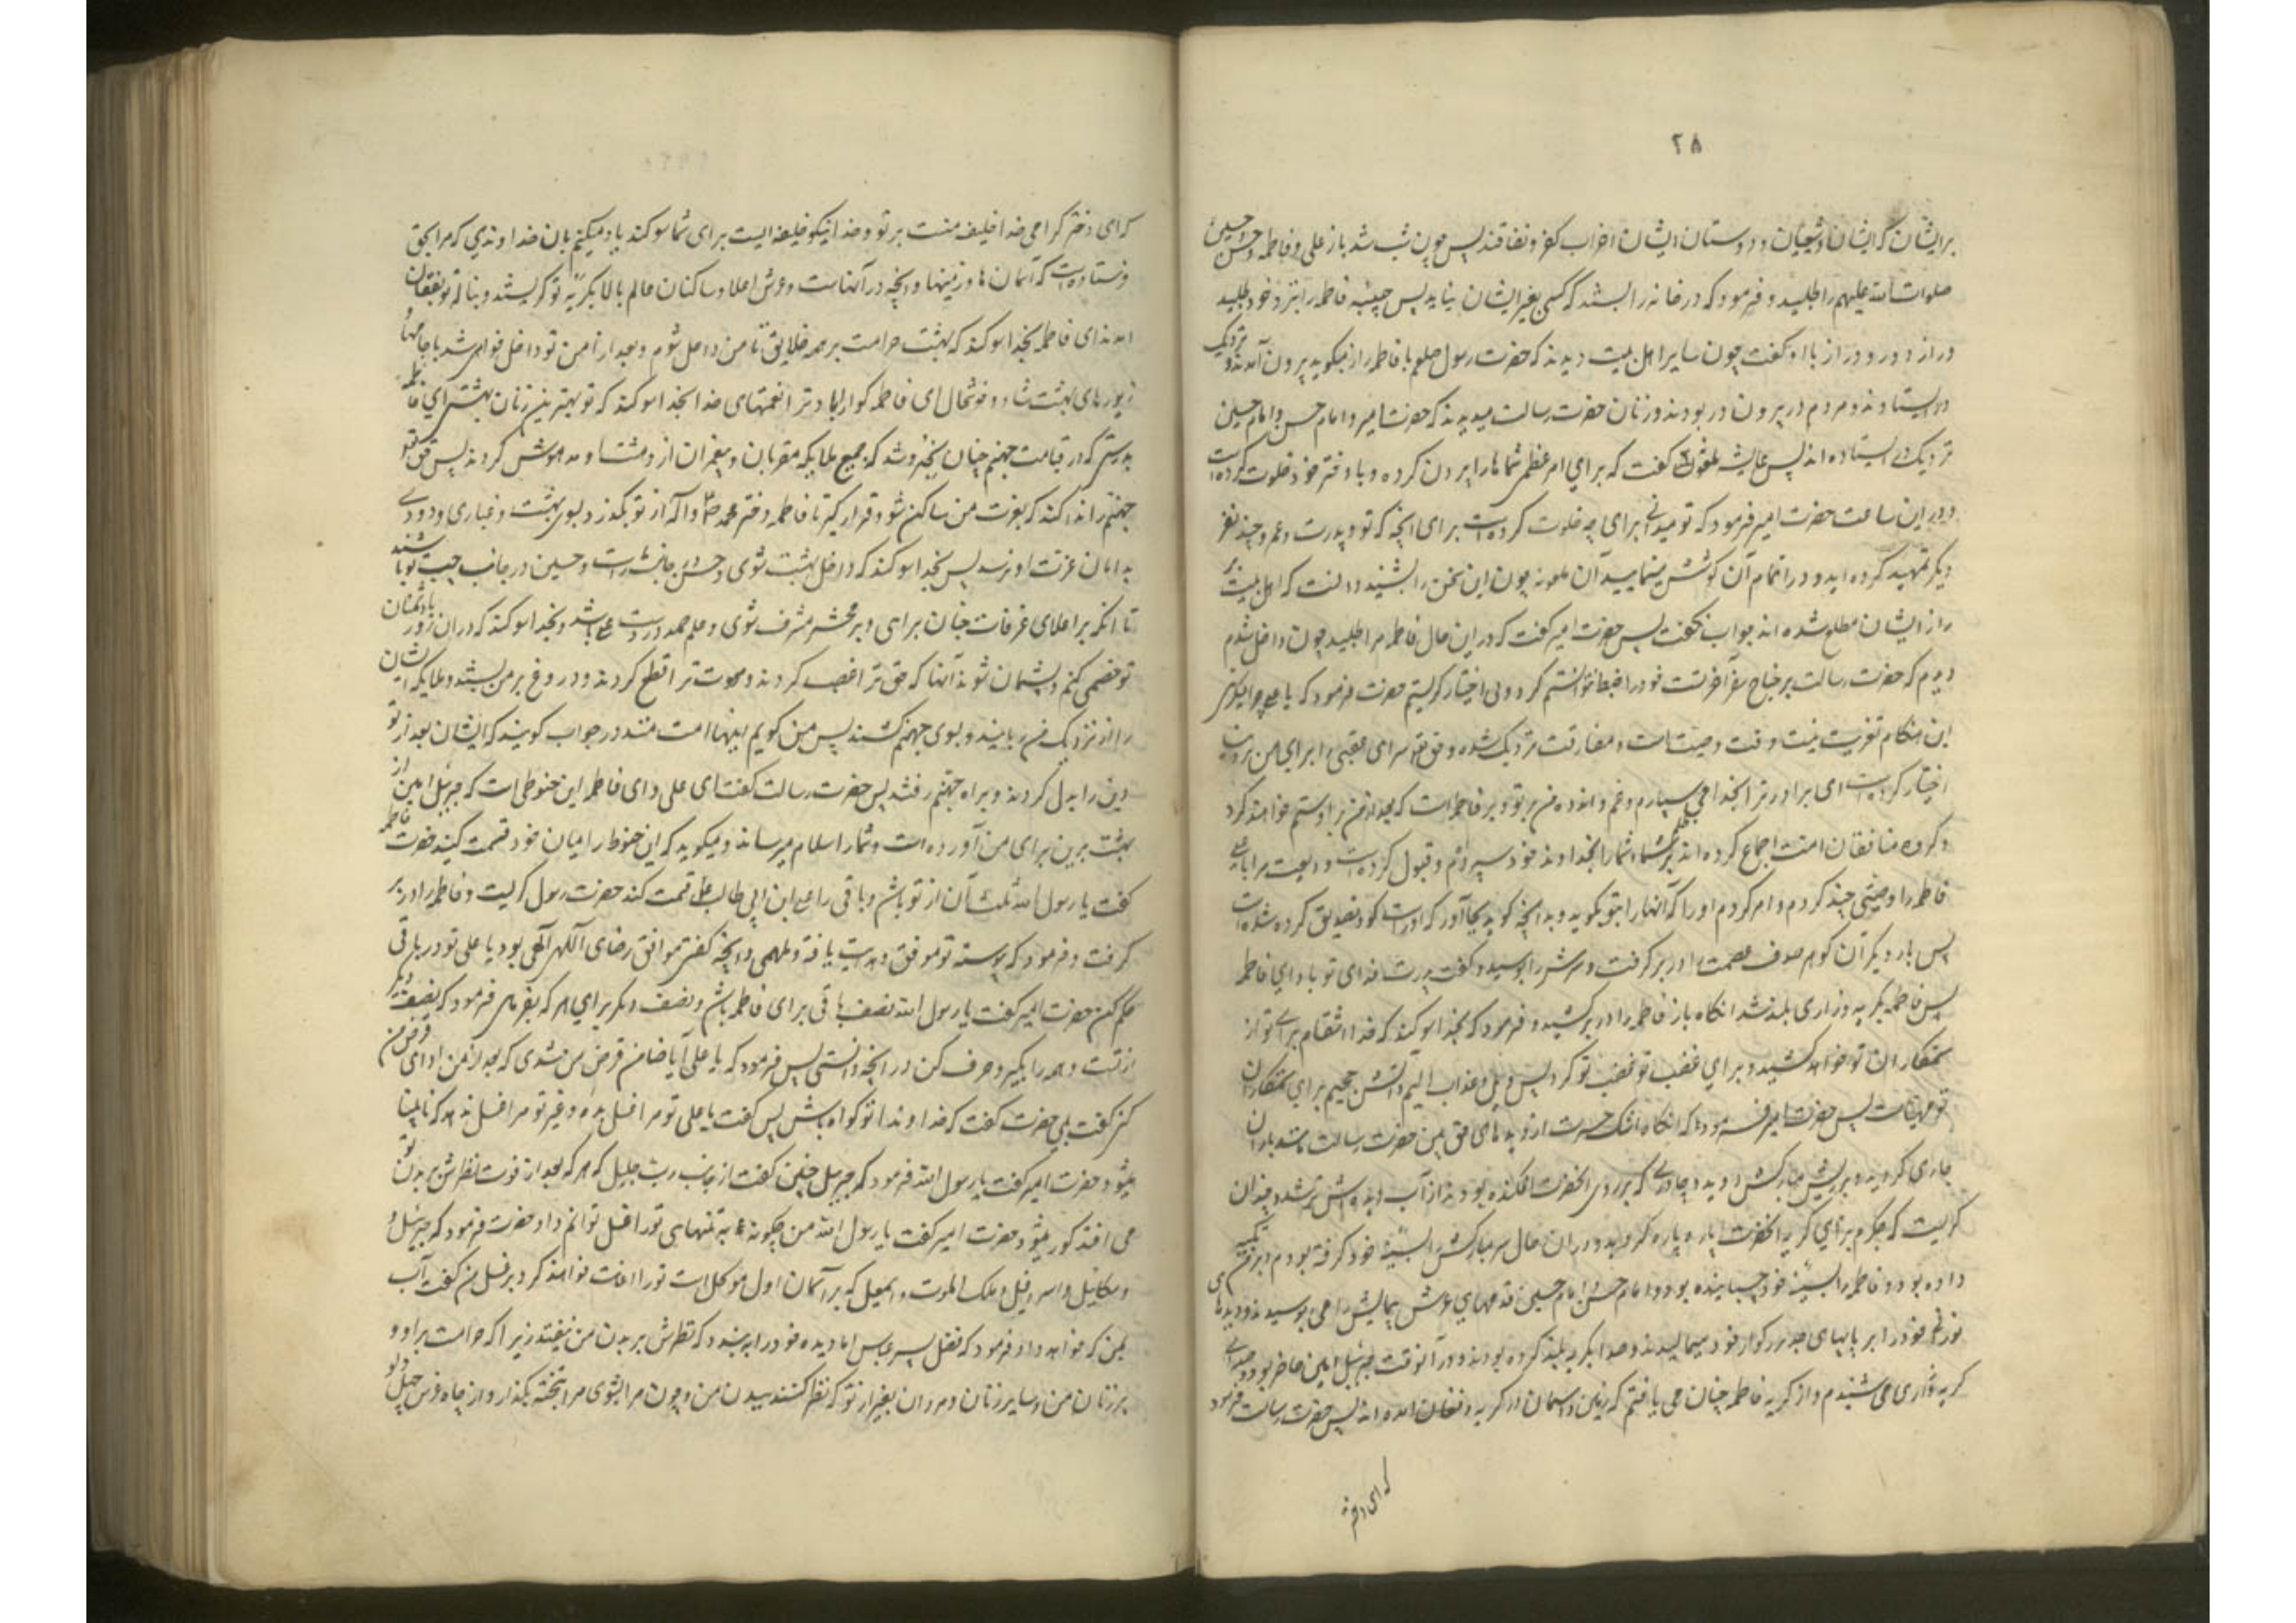 ۲۸
برایشان که ایشان و شیعیان و دوستان ایشان احزاب کفر و نفاقند پس چون شب شد باز علی و فاطمه و حسن و حسین
صلوات الله علیهم را طلبید و فرمود که در خانه را بستند که کسی بغیر ایشان نیاید پس حبیبه فاطمه را بنزد خود طلبید
دراز دور و دراز با او گفت چون سایر اهل بیت دیدند که حضرت رسول صلعم با فاطمه راز میگوید بیرون آمدند و نزدیک
در ایستادند و مردم در بیرون در بودند و زنان حضرت رسالت میدیدند که حضرت امیر و امام حسن و امام حسین
نزدیک در ایستاده اند پس عایشه گفت که برای امر عظمی شماها را بیرون کرده و با دختر خود خلوت کرده است
در این ساعت حضرت امیر فرمود که تو میدانی برای چه خلوت کرده است برای آنچه که تو و پدرت و عمر و چند نفر
دیگر تمهید کرده اید و در اتمام آن کوشش مینمایید آن ملعونه چون این سخن را شنید دانست که اهل بیت بر
راز ایشان مطلع شده اند جواب نگفت پس حضرت امیر گفت که در این حال فاطمه مرا طلبید چون داخل شدم
دیدم که حضرت رسالت بر جناح سفر آخرتست خود را ضبط نتوانستم کرد و بی اختیار گریستم حضرت فرمود که یا علی چرا میگریی
این هنگام تعزیت نیست وقت وصیت است و مفارقت نزدیک شده و حق تعالی سرای عقبی را برای من
اختیار کرده است ای برادر ترا بخدا می سپارم و غم و اندوه من بر تو و بر فاطمه است که بعد از من بر او ستم خواهند کرد
و گروه منافقان امت اجماع کرده اند بر ظلم شما و شما را بخداوند خود سپردم و قبول کرده است ودیعت مرا یا علی
فاطمه را وصیتی چند کردم و امر کردم او را که آنها را بتو بگوید و بدانچه گوید بجا آور که او راست گو و تصدیق کرده شده است
پس بار دیگر آن گوهر صدف عصمت را در بر گرفت و سرش را بوسید و گفت پدرت فدای تو باد ای فاطمه
پس فاطمه بگریه و زاری بلند شد انگاه باز فاطمه را در بر کشید و فرمود که بخدا سوگند که خدا انتقام برای تو از
ستمکاران تو خواهد کشید و برای غضب تو غضب تو کرد پس ویل و عذاب الیم و آتش جحیم برای ستمکاران
تو مهیاست پس حضرت امیر فرمود که انگاه اشک حسرت از دیده های حق بین حضرت رسالت مانند باران
جاری گردید و بر ریش مبارکش دوید و چادری که بر روی آنحضرت افکنده بودند از آب دیده اش تر شد و چندان
گریست که جگرم برای گریه آنحضرت پاره پاره گردید و در آن حال سر مبارکش را بسینه خود گرفته بودم و بر من تکیه
داده بود و فاطمه را بسینه خود چسبانیده بود و امام حسن و امام حسین قدمهای عرش پیمایش را می بوسیدند و دیده های
نور نظر خود را بر پایهای جد بزرگوار خود میمالیدند و صدا بگریه بلند کرده بودند و در آنوقت جبرئیل امین حاضر بود و صدای
گریه و زاری می شنیدم و از گریه فاطمه چنان می یافتم که زمین و آسمان در گریه و فغان آمده اند پس حضرت رسالت فرمود
که ای دختر
که ای دختر گرامی خدا خلیفه منست بر تو و خدا نیکو خلیفه ایست برای شما سوگند یاد میکنم بآن خداوندی که مرا بحق
فرستاده است که آسمان ها و زمینها و آنچه در آنهاست و عرش اعلا و ساکنان عالم بالا بگریه تو گریستند و بناله تو بفغان
آمدند ای فاطمه بخدا سوگند که بهشت حرامست بر همه خلایق تا من داخل شوم و بعد از من تو داخل خواهی شد با جامها و
زیورهای بهشت شاد و خوشحال ای فاطمه گوارا باد ترا نعمتهای خدا بخدا سوگند که تو بهترین زنان بهشتی ای فاطمه
بدرستی که در قیامت جهنم چنان بخروشد که جمیع ملایکه مقربان و پیغمبران از دهشت او مدهوش گردند پس حق تعالی
جهنم را ندا کند که بعزت من ساکن شو و قرار گیر تا فاطمه دختر محمد ص و آله از تو بگذرد بسوی بهشت و غباری و دودی
بدامان عزت او نرسد پس بخدا سوگند که داخل بهشت شوی و حسن بر جانب راست و حسین در جانب چپ تو باشند
تا آنکه بر اعلای غرفات جنان برآیی و بر محشر مشرف شوی و علم حمد در دست علی باشد و بخدا سوگند که در آن روز با دشمنان
تو خصمی کنم و پشیمان شوند آنها که حق ترا غصب کردند و محبت ترا قطع کردند و دروغ بر من بستند و ملایکه ایشان
را از نزدیک من ربایند و بسوی جهنم کشند پس من گویم اینها امت منند در جواب گویند که ایشان بعد از تو
دین را بدل کردند و براه جهنم رفتند پس حضرت رسالت گفت ای علی و ای فاطمه این حنوطی است که جبرئیل امین از
بهشت برین برای من آورده است و شما را سلام میرساند و میگوید که این حنوط را میان خود قسمت کنید فاطمه
گفت یا رسول الله ثلث آن از تو باش و باقی را علی ابن ابی طالب قسمت کند حضرت رسول گریست و فاطمه را در بر
گرفت و فرمود که پیوسته تو موفق و هدایت یافته و ملهمی و آنچه گفتی موافق رضای الهی بود یا علی تو در باقی
حکم کن حضرت امیر گفت یا رسول الله نصف باقی برای فاطمه باش و نصف دیگر برای هر که بفرمایی فرمود که نصف دیگر
از تست و همه را بگیر و صرف کن در آنچه دانستی پس فرمود که یا علی آیا ضامن قرض من شدی که بعد از من ادای قرض من
کنی گفت بلی حضرت گفت که خداوندا تو گواه باش پس گفت یا علی تو مرا غسل بده و غیر تو مرا غسل ندهد که نابینا
میشود حضرت امیر گفت یا رسول الله فرمود که جبرئیل چنین گفت از جانب رب جلیل که هر که بعد از فوت نظرش بر بدن تو
می افتد کور میشود حضرت امیر گفت یا رسول الله من چگونه به تنهایی ترا غسل توانم داد حضرت فرمود که جبرئیل و
میکائیل و اسرافیل و ملک الموت و اسمعیل که بر آسمان اول موکل است ترا اعانت خواهند کرد بر غسل من گفت آب
بمن که خواهد داد فرمود که فضل پسر عباس اما دیده خود را ببندد که نظرش بر بدن من نیفتد زیرا که حرامست بر او و
بر زنان من و سایر زنان و مردان بغیر از تو که نظر کنند ببدن من و چون مرا بشوی مرا بتخته بگذار و از چاه غرس چهل دلو